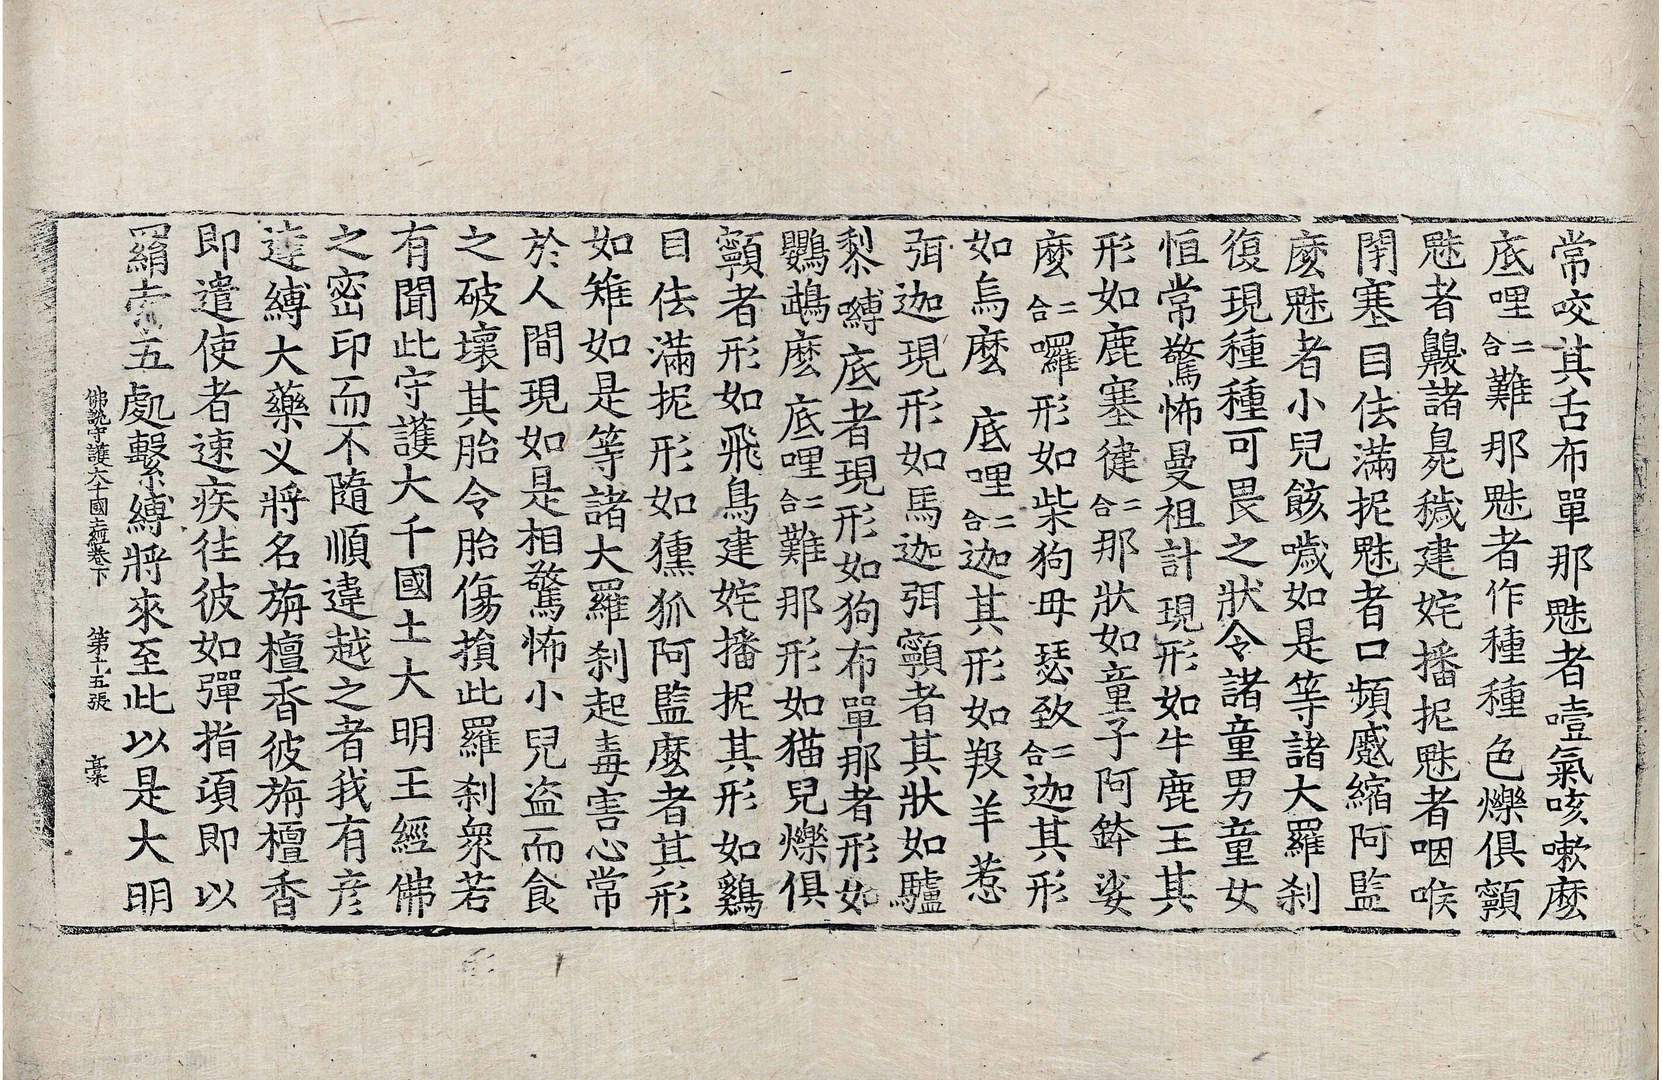 常咬其舌布單那魅者噎氣咳嗽麼
底哩二合難那魅者作種種色爍俱顙
魅者齅諸臭穢建姹播抳魅者咽喉
閇塞目佉滿抳魅者口頻蹙縮阿監
麼魅者小兒餩噦如是等諸大羅刹
復現種種可畏之狀令諸童男童女
恒常驚怖曼祖計現形如牛鹿王其
形如鹿塞健二合那狀如童子阿鉢娑
麼二合囉形如柴狗母瑟致二合迦其形
如烏麼底哩二合迦其形如羖羊惹
弭迦現形如馬迦弭顙者其狀如驢
黎嚩底者現形如狗布單那者形如
鸚鵡麼底哩二合難那形如猫兒爍俱
顙者形如飛鳥建姹播抳其形如鷄
目佉滿抳形如獯狐阿監麼者其形
如雉如是等諸大羅刹起毒害心常
於人間現如是相驚怖小兒盗而食
之破壞其胎令胎傷損此羅刹衆若
有聞此守護大千國土大明王經佛
之密印而不隨順違越之者我有彦
達縛大藥义將名旃檀香彼旃檀香
即遣使者速疾往彼如彈指頃即以
羂索五處繫縛將來至此以是大明
佛說守護大千國土經卷下 第十五張 高